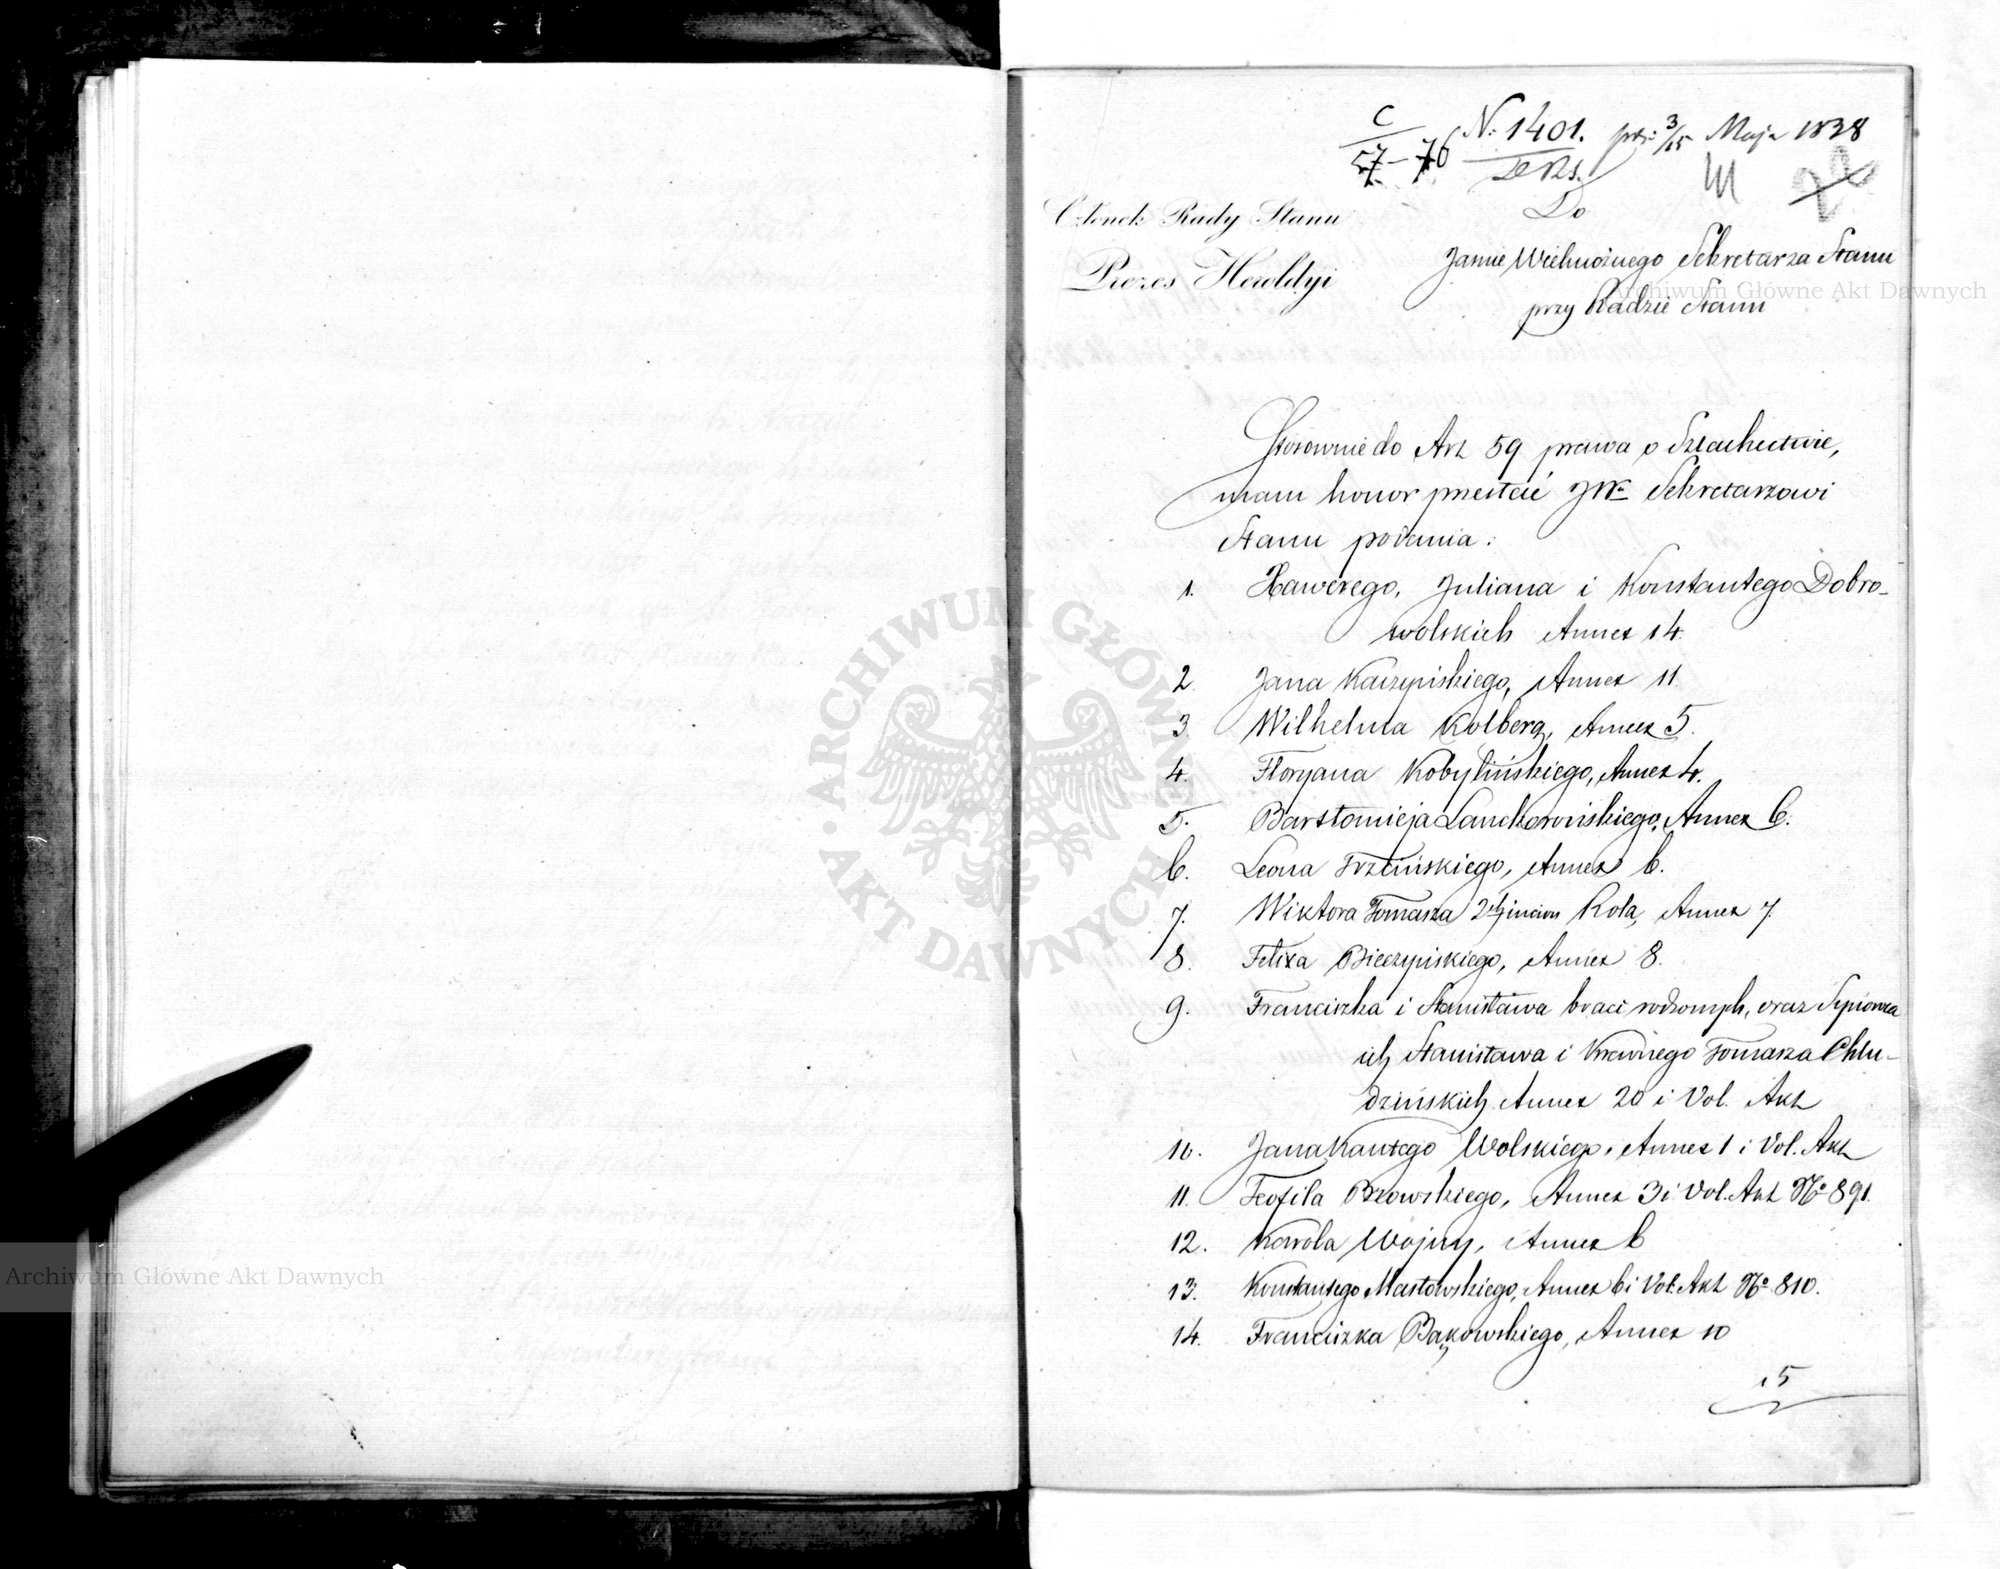 C
57-76
N: 1401. prz: 3/15 Maja 1838
De RLs.
Członek Rady Stanu
Prezes Heroldyi
Do
Jaśnie Wielmożnego Sekretarza Stanu
przy Radzie Stanu
Stósownie do Art 59 prawa o Szlachectwie,
mam honor przesłać JW Sekretarzowi
Stanu podania:
1. Xawerego, Juliana i Konstantego Dobro-
wolskich Annex 14.
2. Jana Kaczyńskiego, Annex 11
3. Wilhelma Kolberg, Annex 5.
4. Floryana Kobylińskiego, Annex 4.
5. Bartłomieja Lanckorońskiego, Annex 6.
6. Leona Trzcińskiego, Annex 6.
7. Wiktora Tomasza 2ga imion Rola, Annex 7.
8. Felixa Bieczyńskiego, Annex 8.
9. Franciszka i Stanisława braci rodzonych, oraz Synowca
ich Stanisława i Krewnego Tomasza Chlu-
dzińskich Annex 20 i Vol. Akt
10. Jana Kantego Wolskiego, Annex 1 i Vol. Akt
11. Teofila Brzowskiego, Annex 3 i Vol. Akt No 891.
12. Karola Wojny, Annex 6
13. Konstantego Masłowskiego, Annex 6 i Vol. Akt No 810.
14. Franciszka Bąkowskiego, Annex 10
15
Archiwum Główne Akt Dawnych
ARCHIWUM GŁÓWNE AKT DAWNYCH
Archiwum Główne Akt Dawnych